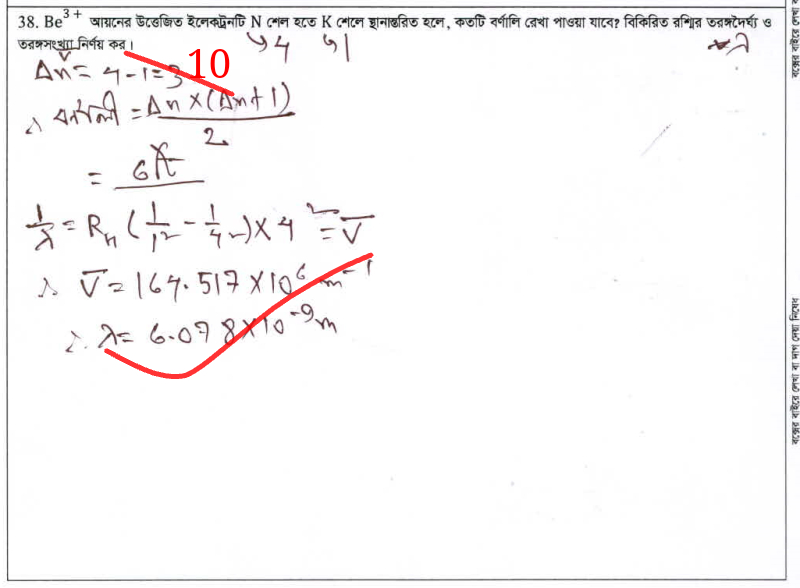 38. Be³⁺ আয়নের উত্তেজিত ইলেকট্রনটি N শেল হতে K শেলে স্থানান্তরিত হলে, কতটি বর্ণালি রেখা পাওয়া যাবে? বিকিরিত রশ্মির তরঙ্গদৈর্ঘ্য ও
তরঙ্গসংখ্যা নির্ণয় কর।
↳4 ↳1
Δn = 4-1=3
10
∴ বর্ণালী = Δn×(Δn+1)/2
= 6 টি
1/λ = R_H (1/1² - 1/4²)×4² = V̅
∴ V̅ = 164.517×10⁶ m⁻¹
∴ λ = 6.078×10⁻⁹m
বক্সের বাইরে লেখা বা দাগ দেয়া নিষেধ